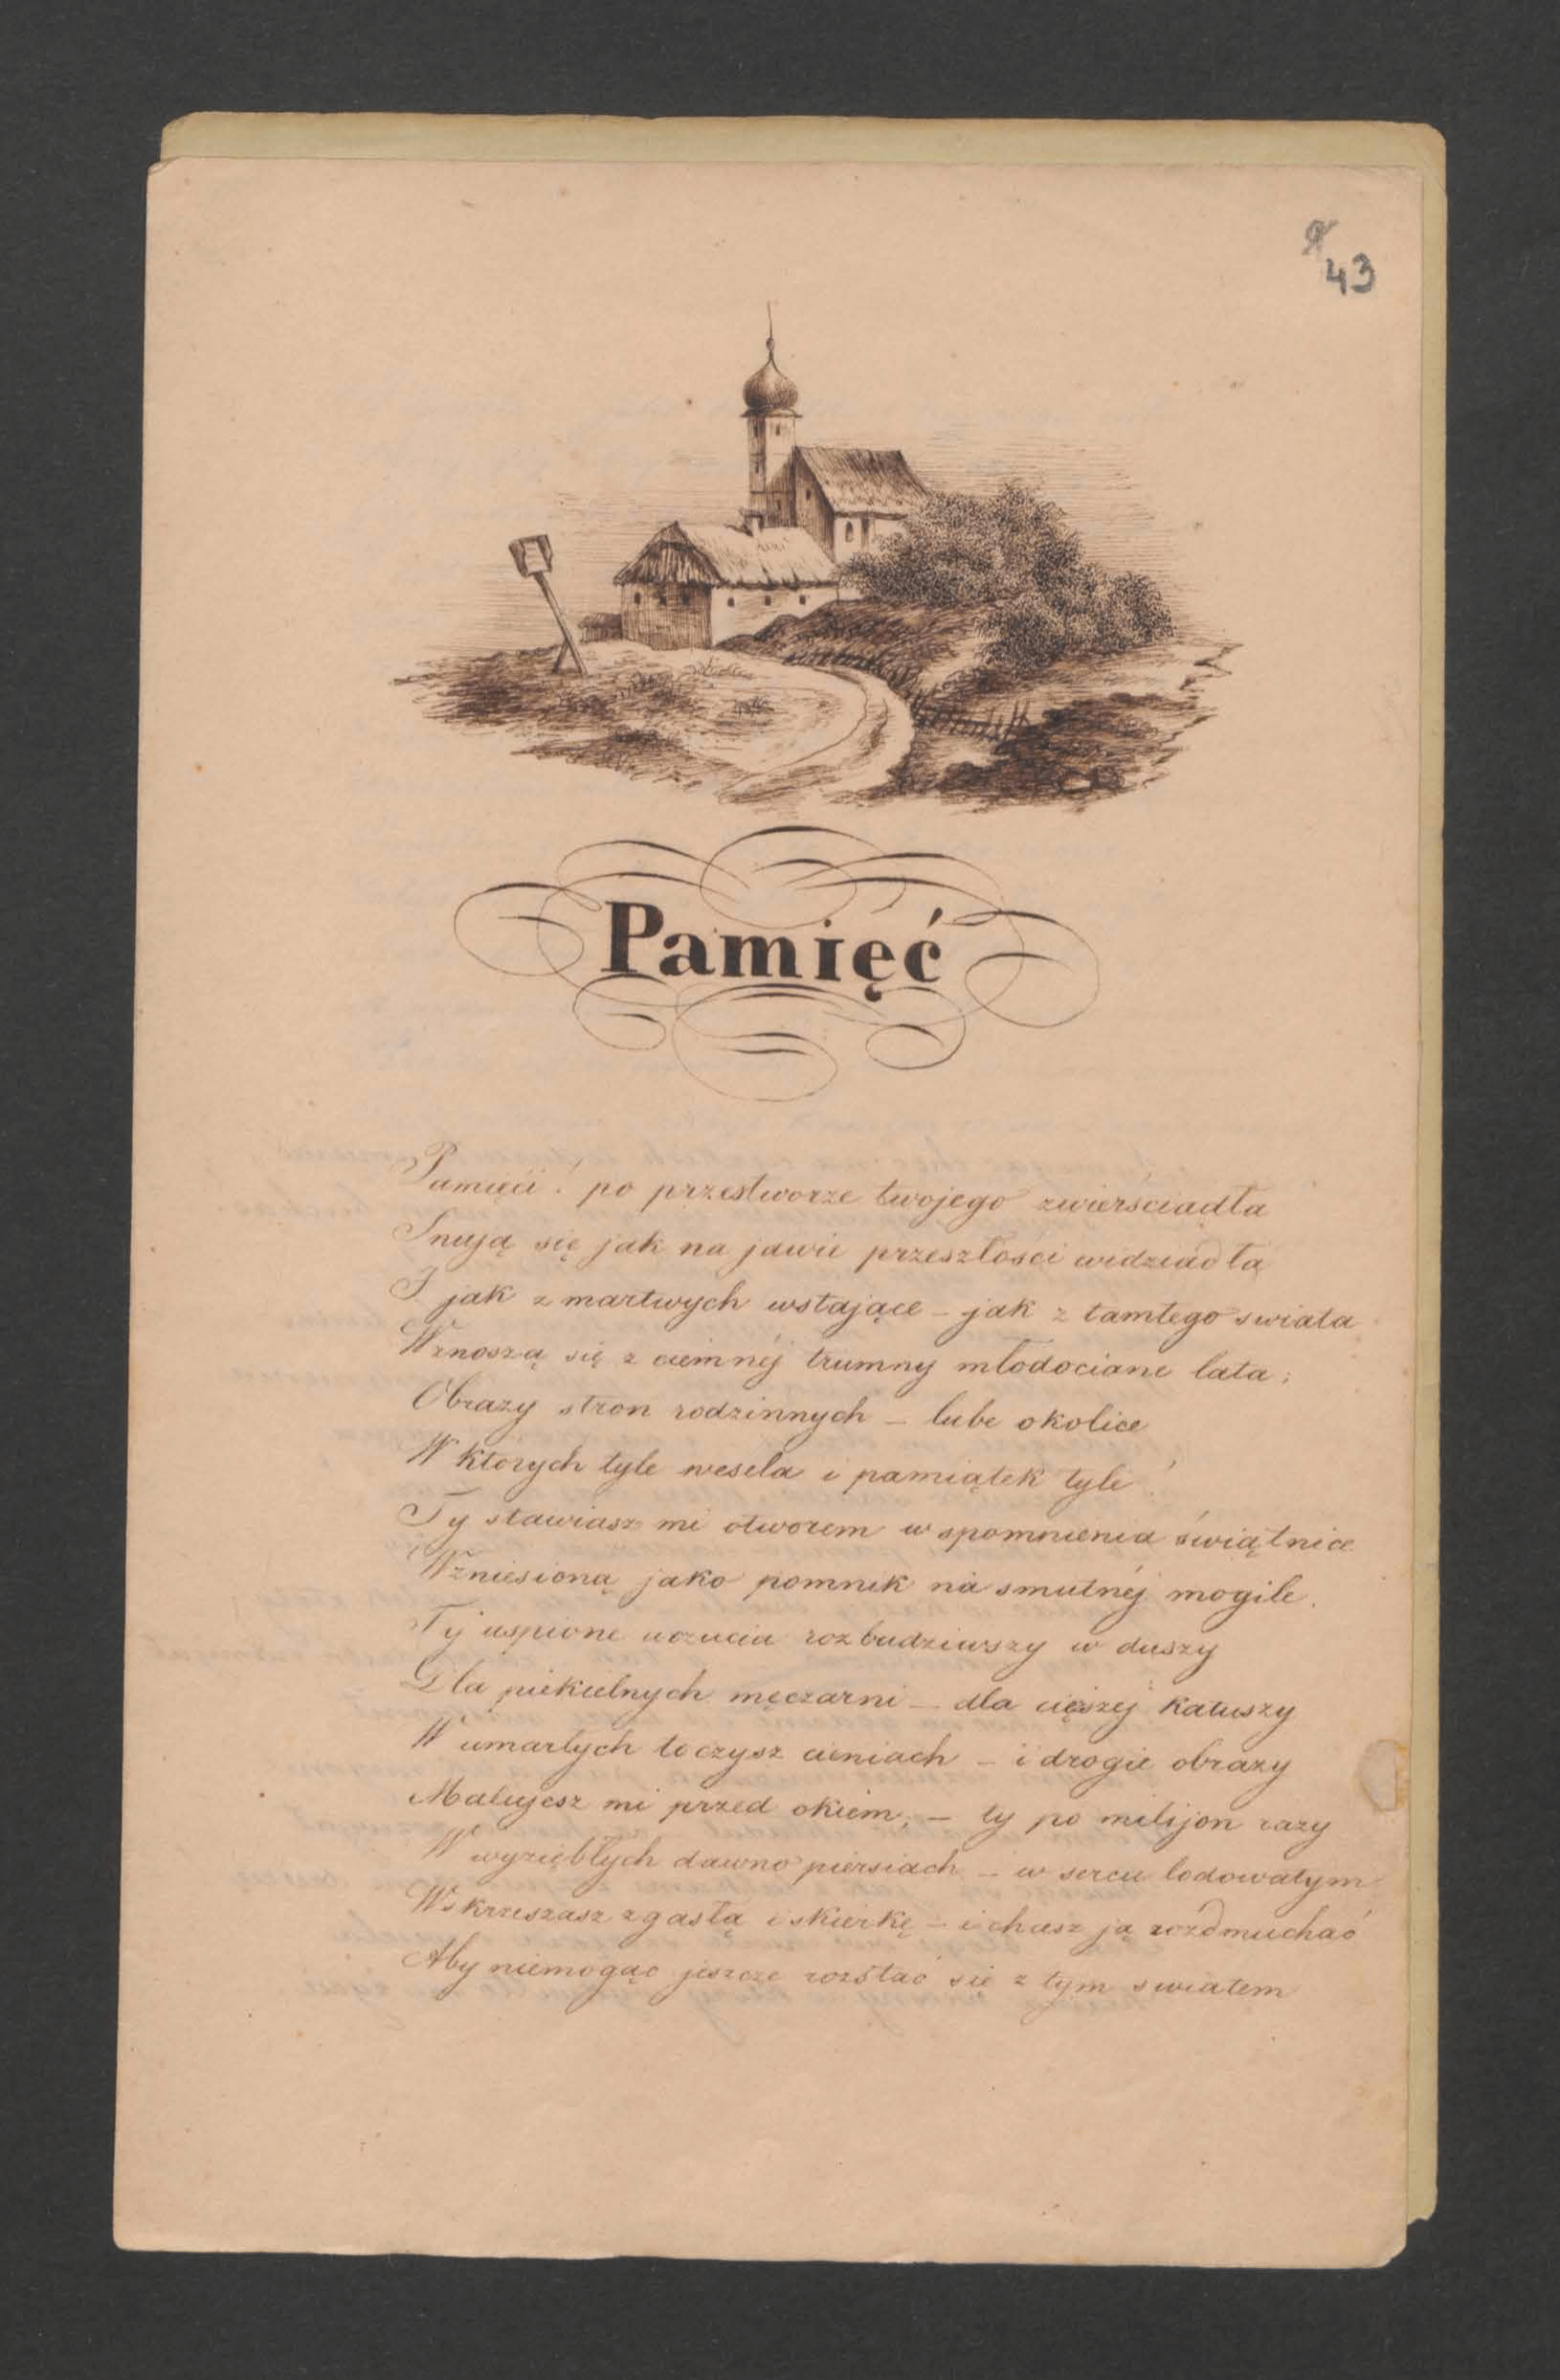 43
Pamięć
Pamięci! po przestworze twojego zwierściadła
Snują się jak na jawie przeszłości widziadła
I jak z martwych wstające – jak z tamtego swiata
Wznoszą się z ciemnéj trumny młodociane lata;
Obrazy stron rodzinnych – lube okolice
W których tyle wesela i pamiątek tyle!
Ty stawiasz mi otworem wspomnienia świątnice
Wzniesioną jako pomnik na smutnéj mogile.
Ty uspione uczucia rozbudziwszy w duszy
Dla piekielnych męczarni – dla cięższej katuszy
W umarłych toczysz cieniach – i drogie obrazy
Malujesz mi przed okiem; – ty po milijon razy
W wyziębłych dawno piersiach – w sercu lodowatym
Wskrzeszasz zgasłą iskierkę – i chcesz ją rozdmuchać
Aby niemogąc jeszcze rozstać się z tym swiatem